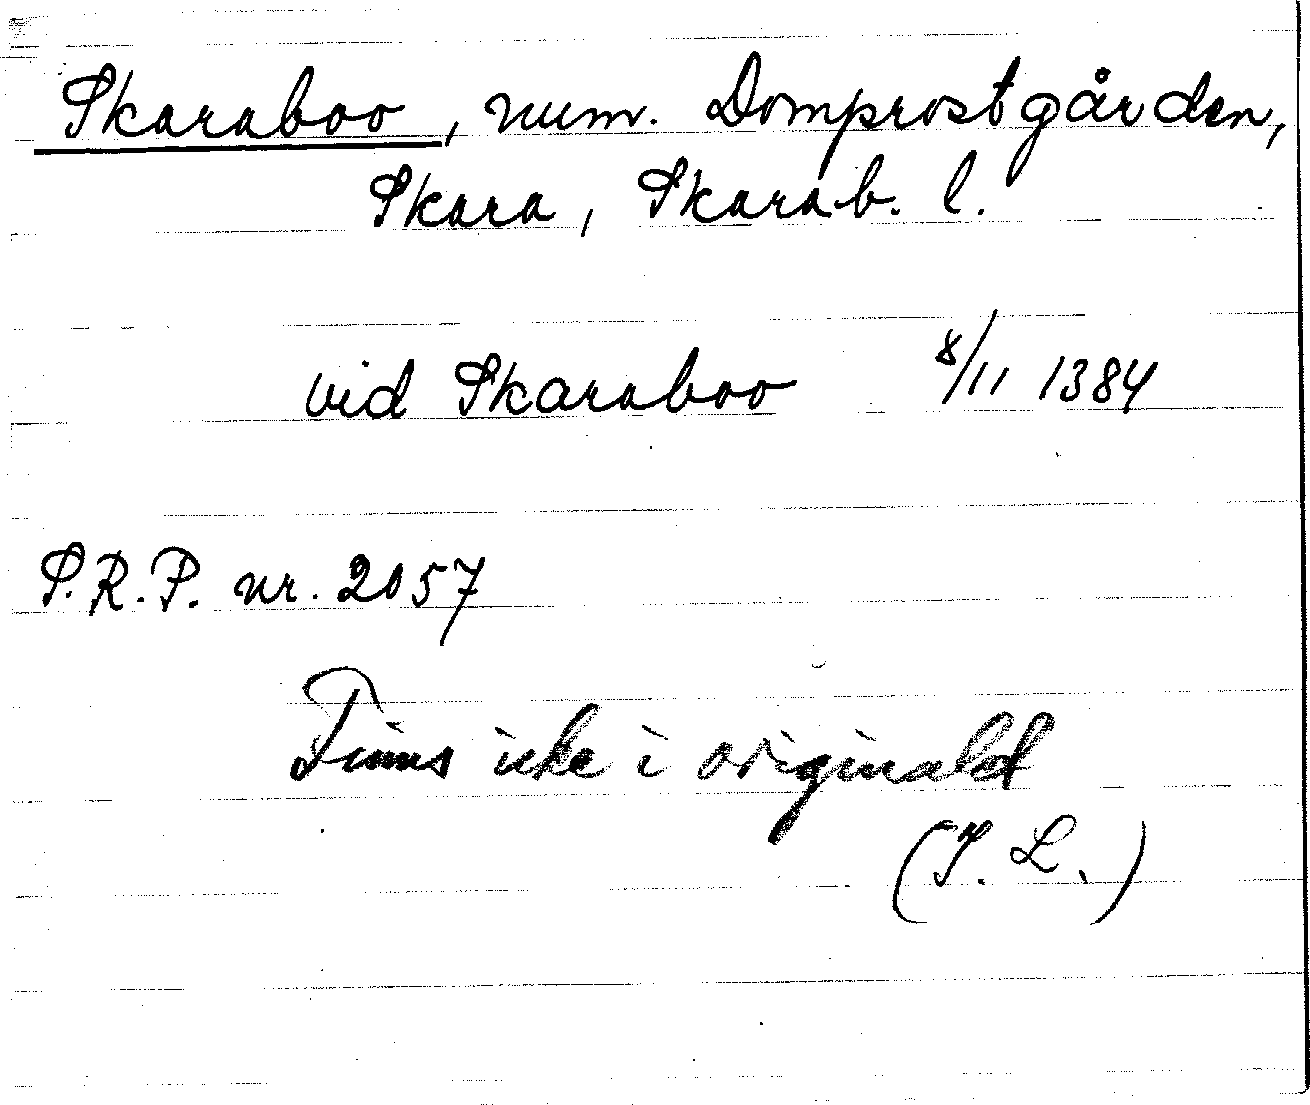 Skaraboo, num. Domprostgården,
Skara, Skarab. l.
vid Skaraboo 8/11 1384
S.R.P. nr. 2057
Finns icke i original
(I. L.)